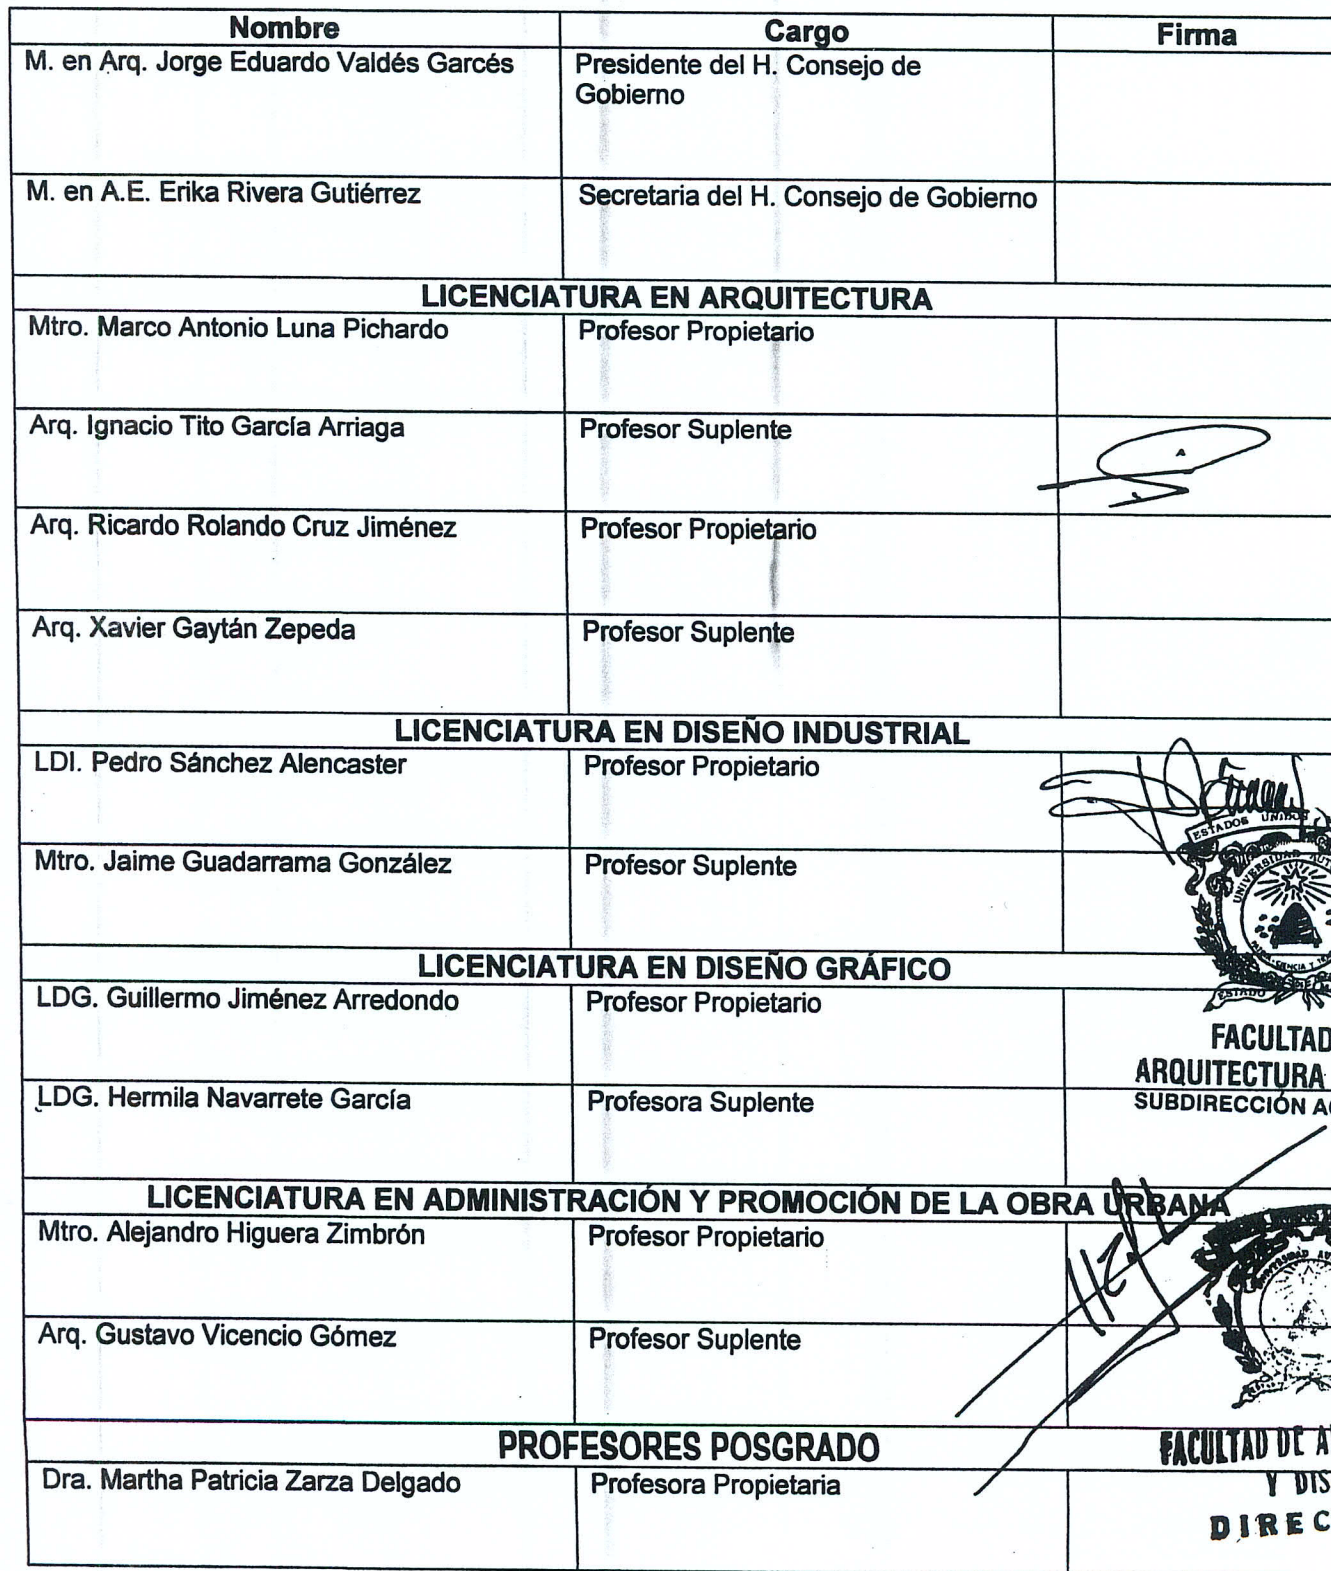 Nombre Cargo Firma
M. en Arq. Jorge Eduardo Valdés Garcés Presidente del H. Consejo de
Gobierno
M. en A.E. Erika Rivera Gutiérrez Secretaria del H. Consejo de Gobierno
LICENCIATURA EN ARQUITECTURA
Mtro. Marco Antonio Luna Pichardo Profesor Propietario
Arq. Ignacio Tito García Arriaga Profesor Suplente
Arq. Ricardo Rolando Cruz Jiménez Profesor Propietario
Arq. Xavier Gaytán Zepeda Profesor Suplente
LICENCIATURA EN DISEÑO INDUSTRIAL
LDI. Pedro Sánchez Alencaster Profesor Propietario
ESTADOS UNIDOS
Mtro. Jaime Guadarrama González Profesor Suplente
UNIVERSIDAD
CIENCIA Y
LICENCIATURA EN DISEÑO GRÁFICO
LDG. Guillermo Jiménez Arredondo Profesor Propietario
ESTADO
FACULTAD
ARQUITECTURA
LDG. Hermila Navarrete García Profesora Suplente
SUBDIRECCIÓN A
LICENCIATURA EN ADMINISTRACIÓN Y PROMOCIÓN DE LA OBRA URBANA
Mtro. Alejandro Higuera Zimbrón Profesor Propietario
Arq. Gustavo Vicencio Gómez Profesor Suplente
PROFESORES POSGRADO
FACULTAD DE A
Dra. Martha Patricia Zarza Delgado Profesora Propietaria
Y DIS
DIREC